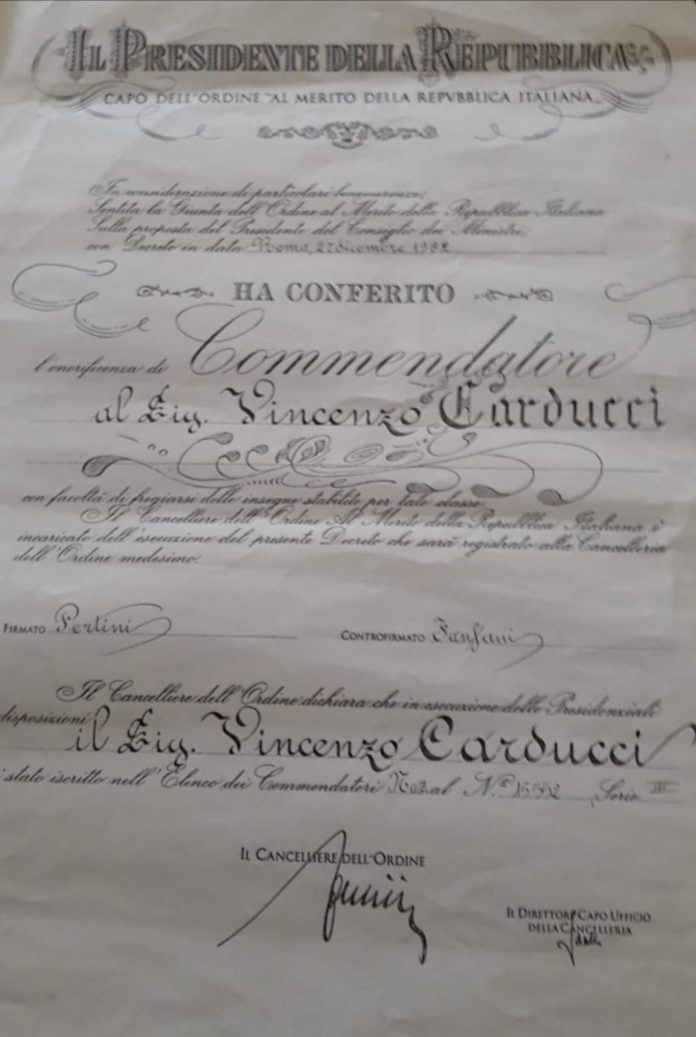 IL PRESIDENTE DELLA REPUBBLICA
CAPO DELL'ORDINE "AL MERITO DELLA REPVBBLICA ITALIANA"
In considerazione di particolari benemerenze;
Sentita la Giunta dell'Ordine al Merito della Repubblica Italiana
Sulla proposta del Presidente del Consiglio dei Ministri:
con Decreto in data Roma, 27 dicembre 1982
HA CONFERITO
l'onorificenza di Commendatore
al Sig. Vincenzo Carducci
con facoltà di fregiarsi delle insegne stabilite per tale classe.
Il Cancelliere dell'Ordine Al Merito della Repubblica Italiana è
incaricato dell'esecuzione del presente Decreto che sarà registrato alla Cancelleria
dell'Ordine medesimo.
FIRMATO Pertini CONTROFIRMATO Fanfani
Il Cancelliere dell'Ordine dichiara che in esecuzione delle Presidenziali
disposizioni il Sig. Vincenzo Carducci
stato iscritto nell'Elenco dei Commendatori Naz. al N. Serie III
IL CANCELLIERE DELL'ORDINE
IL DIRETTORE CAPO UFFICIO
DELLA CANCELLERIA